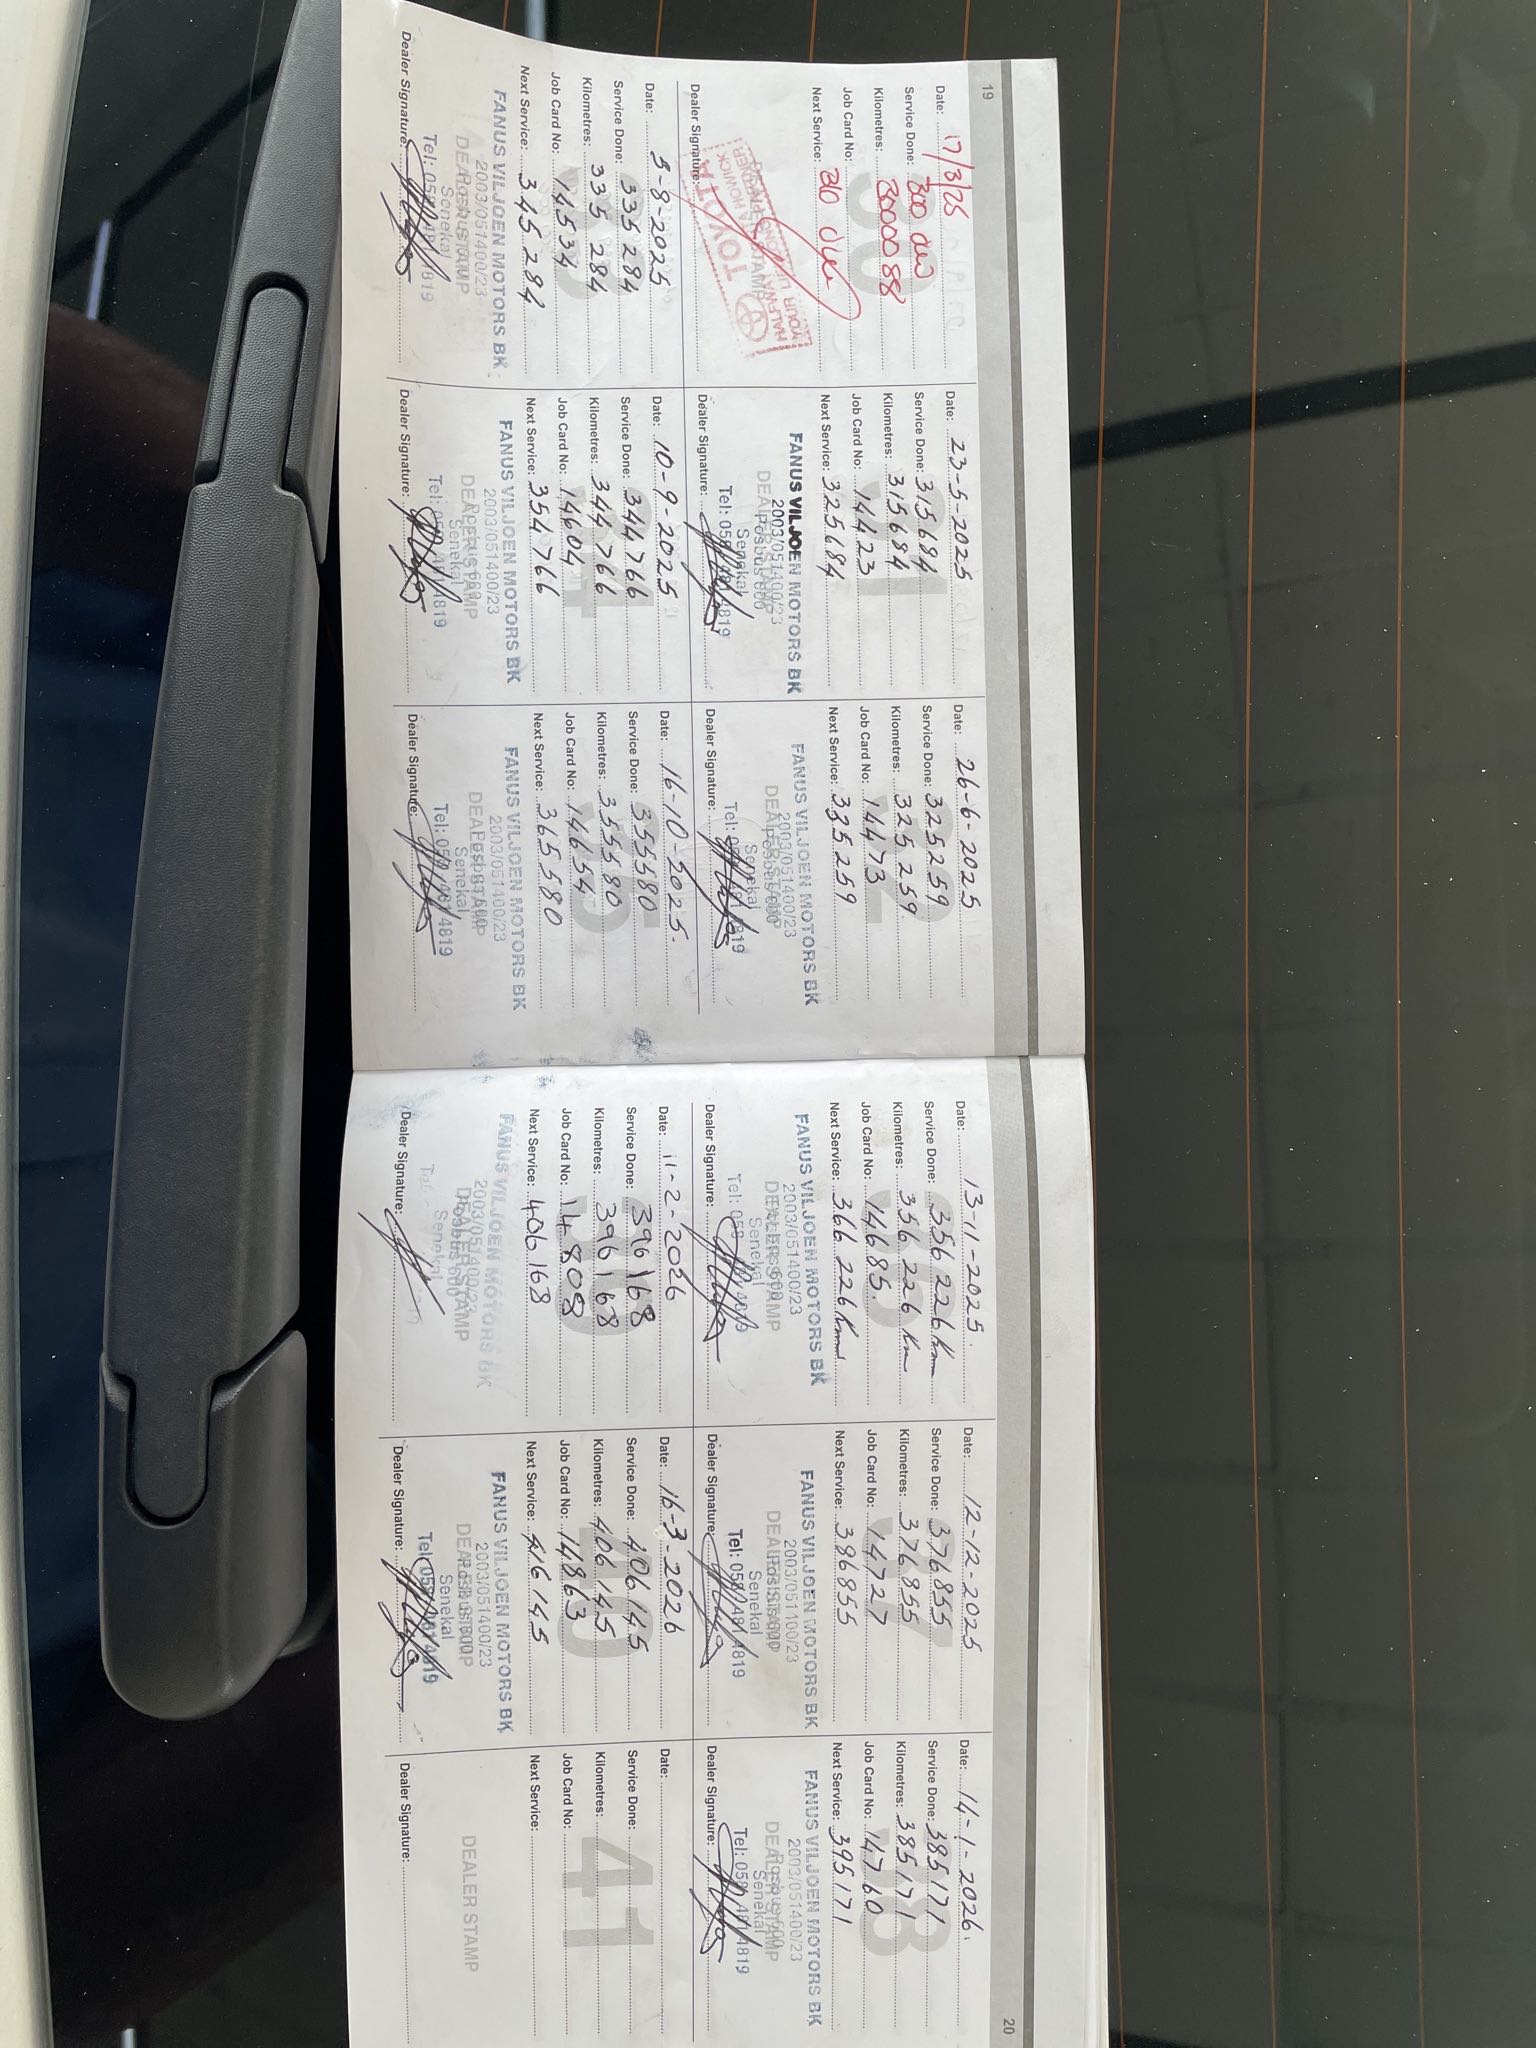 19
Date: 17/3/25
Service Done: 300 000
Kilometres: 3000088
Job Card No:
Next Service: 310 000
TOYOTA
Dealer Signature:
Date: 23-5-2025
Service Done: 315684
Kilometres: 315684
Job Card No: 14423
Next Service: 325684
FANUS VILJOEN MOTORS BK
2003/051400/23
DEALER STAMP
Posbus 600
Senekal
Tel: 058 481 4819
Dealer Signature:
Date: 26-6-2025
Service Done: 325259
Kilometres: 325259
Job Card No: 14473
Next Service: 335259
FANUS VILJOEN MOTORS BK
2003/051400/23
DEALER STAMP
Posbus 600
Senekal
Tel: 058 481 4819
Dealer Signature:
Date: 5-8-2025
Service Done: 335284
Kilometres: 335 284
Job Card No: 14534
Next Service: 345284
FANUS VILJOEN MOTORS BK
2003/051400/23
DEALER STAMP
Posbus 600
Senekal
Tel: 058 481 4819
Dealer Signature:
Date: 10-9-2025
Service Done: 344766
Kilometres: 344766
Job Card No: 14604
Next Service: 354766
FANUS VILJOEN MOTORS BK
2003/051400/23
DEALER STAMP
Posbus 600
Senekal
Tel: 058 481 4819
Dealer Signature:
Date: 16-10-2025.
Service Done: 355580
Kilometres: 355580
Job Card No: 14654
Next Service: 365580
FANUS VILJOEN MOTORS BK
2003/051400/23
DEALER STAMP
Posbus 600
Senekal
Tel: 058 481 4819
Dealer Signature:
20
Date: 13-11-2025.
Service Done: 356 226 Km
Kilometres: 356 226 Km
Job Card No: 14685.
Next Service: 366 226 Km
FANUS VILJOEN MOTORS BK
2003/051400/23
DEALER STAMP
Posbus 600
Senekal
Tel: 058 481 4819
Dealer Signature:
Date: 12-12-2025
Service Done: 376855
Kilometres: 376855
Job Card No: 14727
Next Service: 386855
FANUS VILJOEN MOTORS BK
2003/051400/23
DEALER STAMP
Posbus 600
Senekal
Tel: 058 481 4819
Dealer Signature:
Date: 14-1-2026.
Service Done: 385171
Kilometres: 385171
Job Card No: 14760
Next Service: 395171
FANUS VILJOEN MOTORS BK
2003/051400/23
DEALER STAMP
Posbus 600
Senekal
Tel: 058 481 4819
Dealer Signature:
Date: 11-2-2026
Service Done: 396168
Kilometres: 396168
Job Card No: 14808
Next Service: 406168
FANUS VILJOEN MOTORS BK
2003/051400/23
DEALER STAMP
Posbus 600
Senekal
Dealer Signature:
Date: 16-3-2026
Service Done: 406145
Kilometres: 406145
Job Card No: 14863
Next Service: 416145
FANUS VILJOEN MOTORS BK
2003/051400/23
DEALER STAMP
Posbus 600
Senekal
Tel: 058 481 4819
Dealer Signature:
41
Date:
Service Done:
Kilometres:
Job Card No:
Next Service:
DEALER STAMP
Dealer Signature: